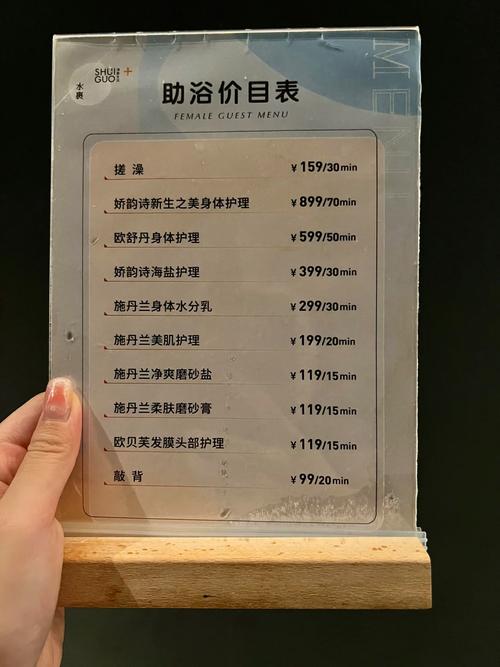 水裹
SHUI
GUO
+
MENU
助浴价目表
FEMALE GUEST MENU
搓 澡 ¥159/30min
娇韵诗新生之美身体护理 ¥899/70min
欧舒丹身体护理 ¥599/50min
娇韵诗海盐护理 ¥399/30min
施丹兰身体水分乳 ¥299/30min
施丹兰美肌护理 ¥199/20min
施丹兰净爽磨砂盐 ¥119/15min
施丹兰柔肤磨砂膏 ¥119/15min
欧贝芙发膜头部护理 ¥119/15min
敲 背 ¥99/20min